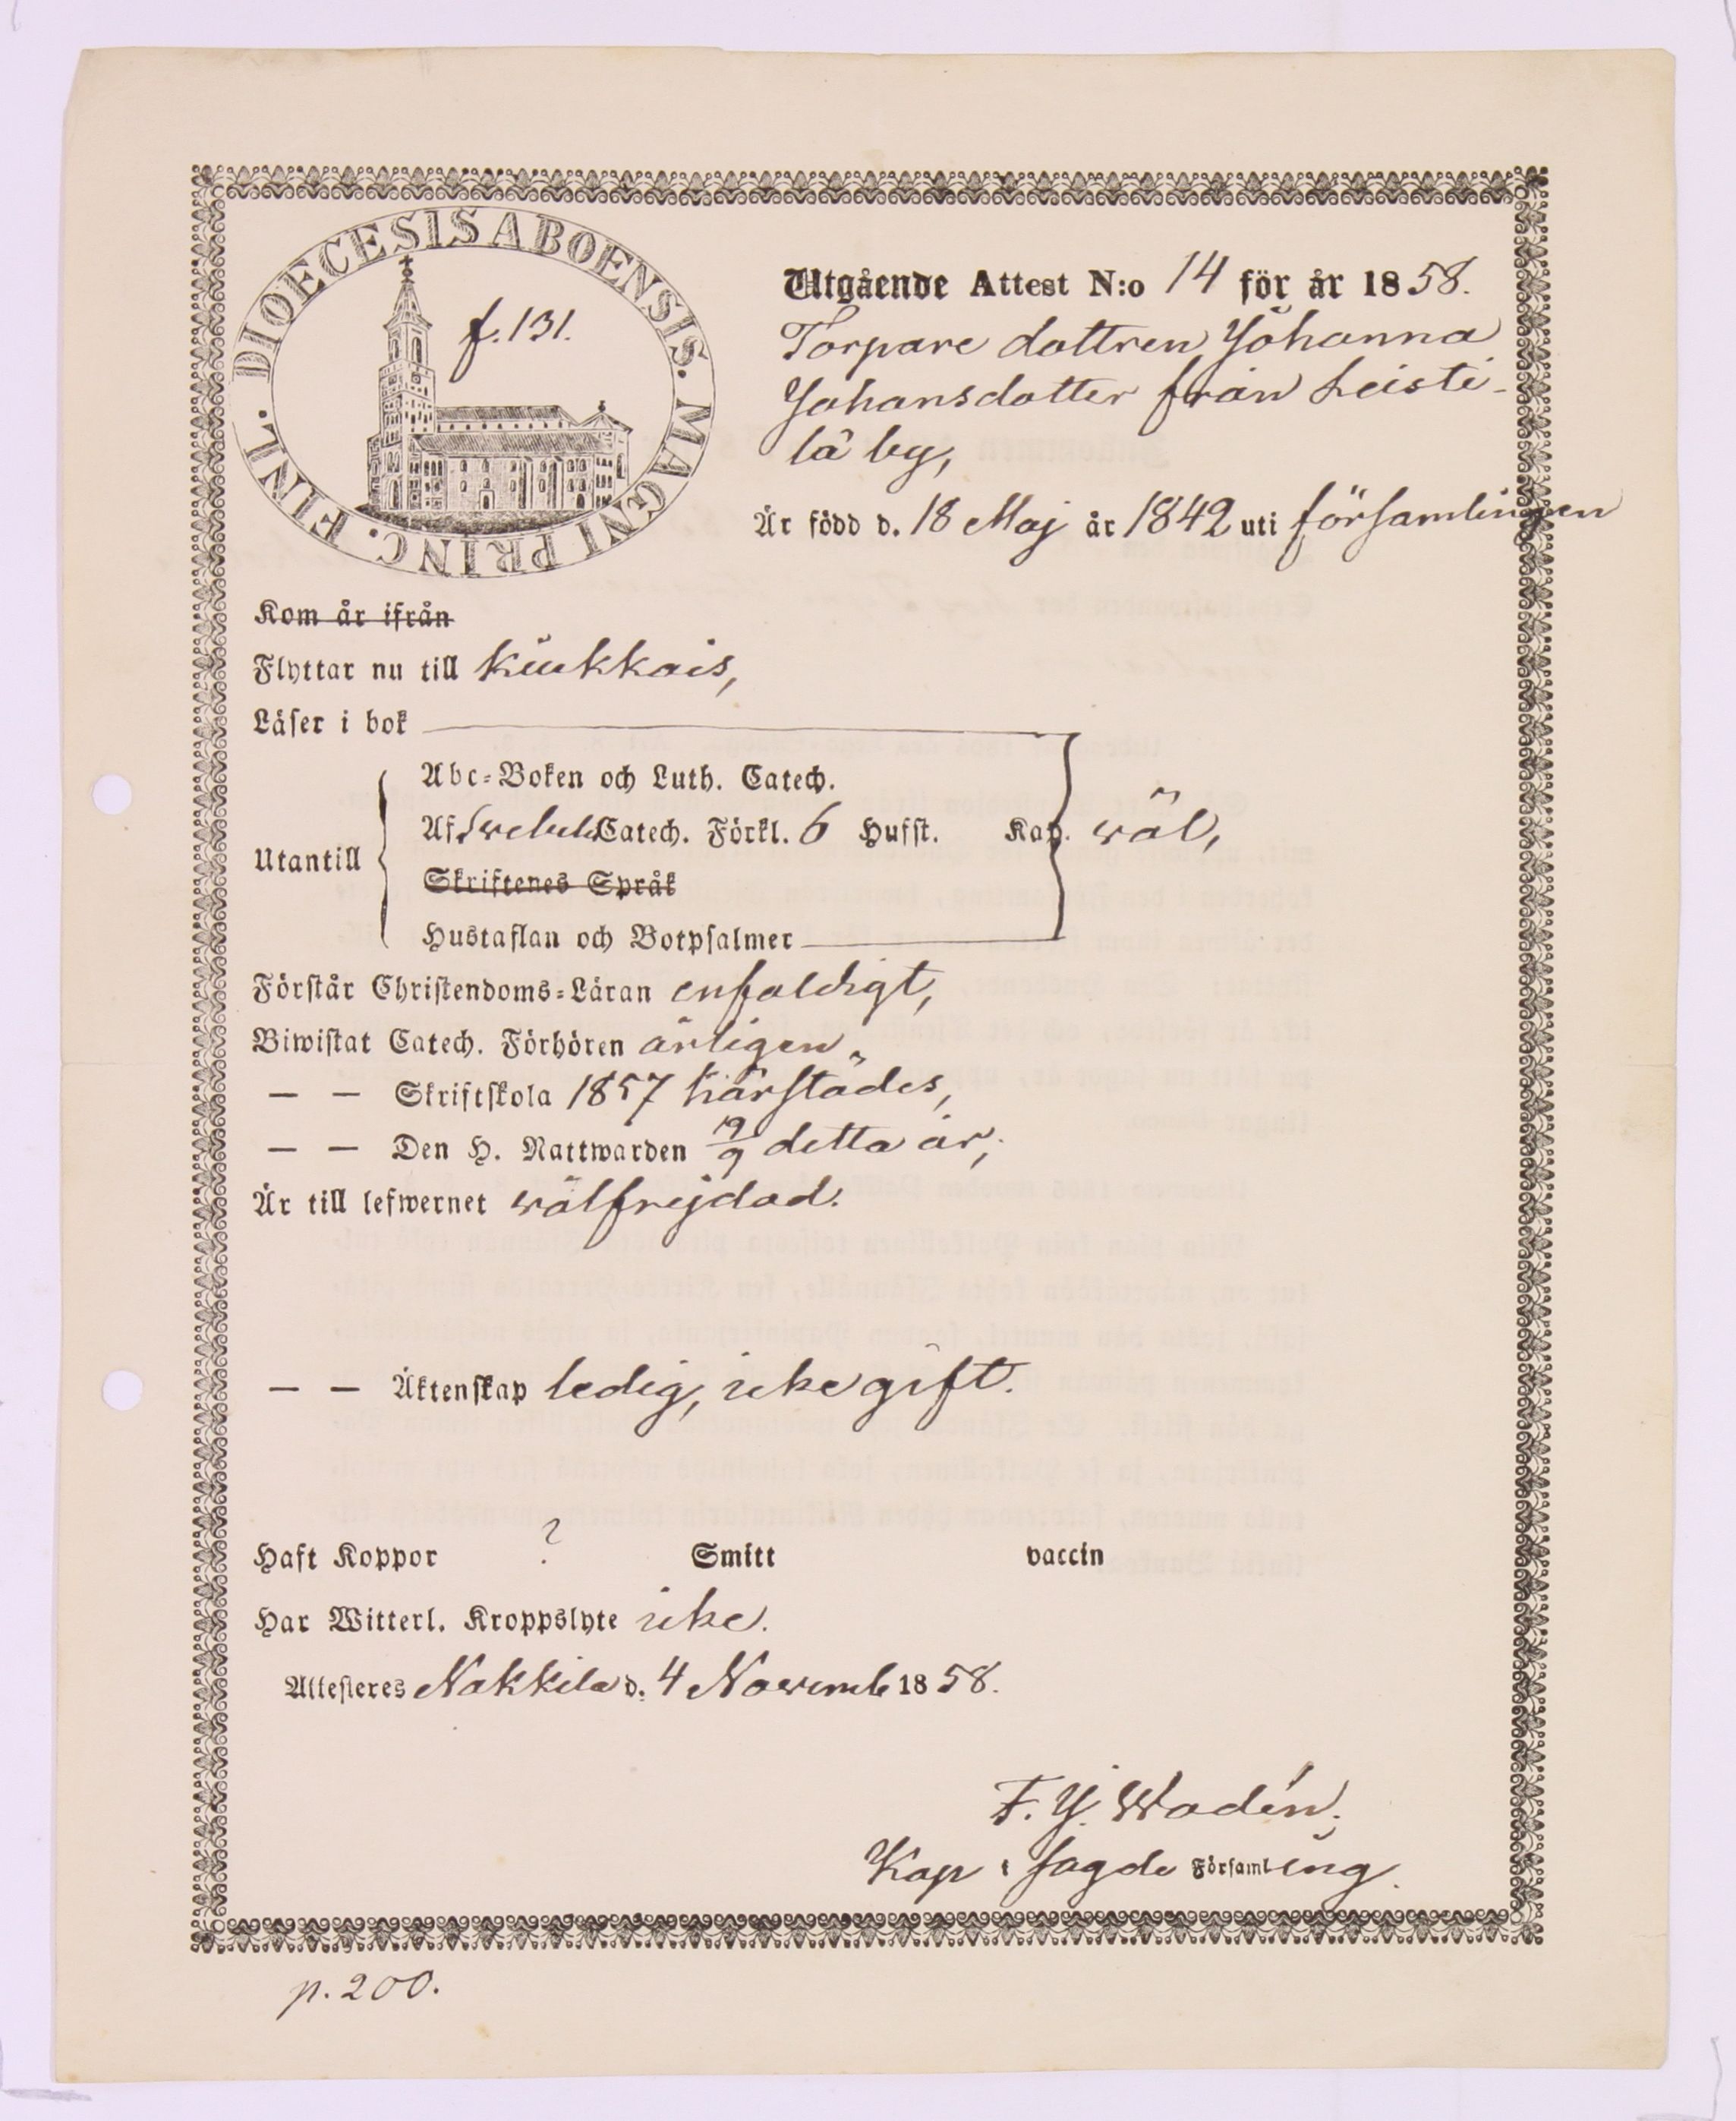 DIOECESIS ABOENSIS. MAGNI PRINC. FINL.
f. 131.
Utgående Attest N:o 14 för år 1858.
Torpare dottren Johanna
Johansdotter från Leisti-
lä by,
Är född d. 18 Maj år 1842 uti församlingen
Kom år ifrån
Flyttar nu till Kiukkais,
Läser i bok
Abc-Boken och Luth. Catech.
Utantill Af Swebelii Catech. Förkl. 6 Hufst. Kap. wäl,
Skriftenes Språk
Hustaflan och Botpsalmer
Förstår Christendoms-Läran enfaldigt,
Biwistat Catech. Förhören årligen,
— — Skriftskola 1857 härstädes,
— — Den H. Nattwarden 19/9 detta år,
Är till lefwernet wälfrejdad.
— — Äktenskap ledig, icke gift.
Haft Koppor ? Smitt vaccin
Har Witterl. Kroppslyte icke.
Attesteres Nakkila d. 4 Novemb 1858.
F. J. Wadén.
Kap i sagde Församling.
p. 200.